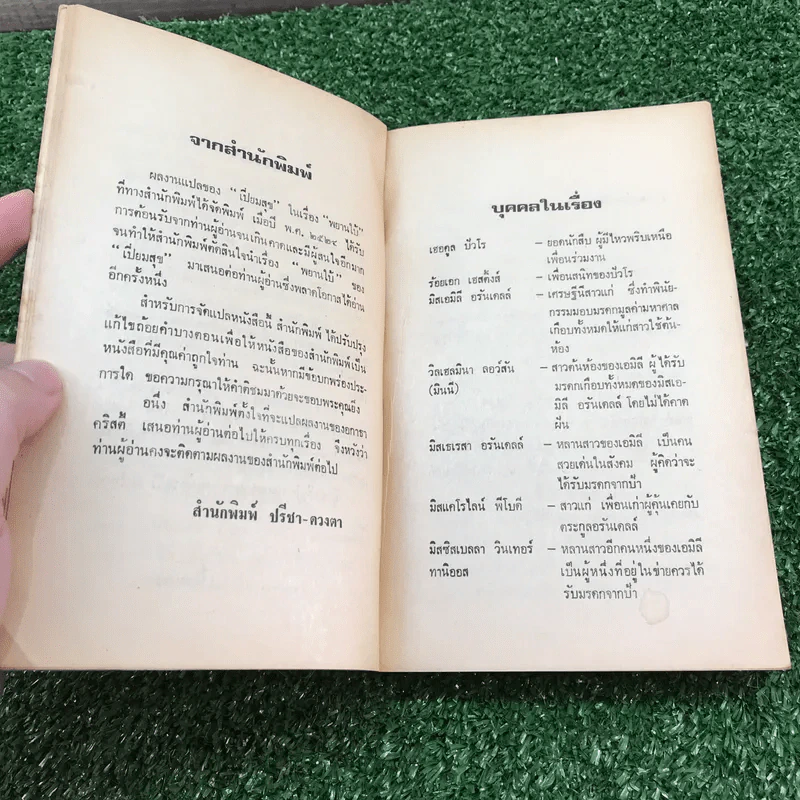 จากสำนักพิมพ์
ผลงานแปลของ "เปี่ยมสุข" ในเรื่อง "พยานใบ้"
ที่ทางสำนักพิมพ์ได้จัดพิมพ์ เมื่อปี พ.ศ. ๒๕๒๔ ได้รับ
การต้อนรับจากท่านผู้อ่านจนเกินคาดและมีผู้สนใจอีกมาก
จนทำให้สำนักพิมพ์ตัดสินใจนำเรื่อง "พยานใบ้" ของ
"เปี่ยมสุข" มาเสนอต่อท่านผู้อ่านซึ่งพลาดโอกาสได้อ่าน
อีกครั้งหนึ่ง
สำหรับการจัดแปลหนังสือนี้ สำนักพิมพ์ ได้ปรับปรุง
แก้ไขถ้อยคำบางตอนเพื่อให้หนังสือของสำนักพิมพ์เป็น
หนังสือที่มีคุณค่าถูกใจท่าน ฉะนั้นหากมีข้อบกพร่องประ-
การใด ขอความกรุณาให้คำติชมมาด้วยจะขอบพระคุณยิ่ง
อนึ่ง สำนักพิมพ์ตั้งใจที่จะแปลผลงานของอกาธา
คริสตี้ เสนอท่านผู้อ่านต่อไปให้ครบทุกเรื่อง จึงหวังว่า
ท่านผู้อ่านคงจะติดตามผลงานของสำนักพิมพ์ต่อไป
สำนักพิมพ์ ปรีชา-ดวงตา
บุคคลในเรื่อง
เฮอคูล ปัวโร – ยอดนักสืบ ผู้มีไหวพริบเหนือ
เพื่อนร่วมงาน
ร้อยเอก เฮสติ้งส์ – เพื่อนสนิทของปัวโร
มิสเอมิลี อรันเดลล์ – เศรษฐีนีสาวแก่ ซึ่งทำพินัย-
กรรมมอบมรดกมูลค่ามหาศาล
เกือบทั้งหมดให้แก่สาวใช้ต้น-
ห้อง
วิลเฮลมินา ลอว์สัน – สาวต้นห้องของเอมิลี ผู้ได้รับ
(มินนี่) มรดกเกือบทั้งหมดของมิสเอ-
มิลี อรันเดลล์ โดยไม่ได้คาด
ฝัน
มิสเธเรสา อรันเดลล์ – หลานสาวของเอมิลี เป็นคน
สวยเด่นในสังคม ผู้คิดว่าจะ
ได้รับมรดกจากป้า
มิสแคโรไลน์ พีโบดี – สาวแก่ เพื่อนเก่าผู้คุ้นเคยกับ
ตระกูลอรันเดลล์
มิสซิสเบลลา วินเทอร์ – หลานสาวอีกคนหนึ่งของเอมิลี
ทานิออส เป็นผู้หนึ่งที่อยู่ในข่ายควรได้
รับมรดกจากป้า